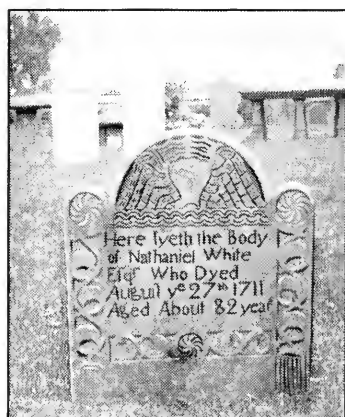 Here lyeth the Body
of Nathaniel White
Esqr Who Dyed
August ye 27th 1711
Aged About 82 year